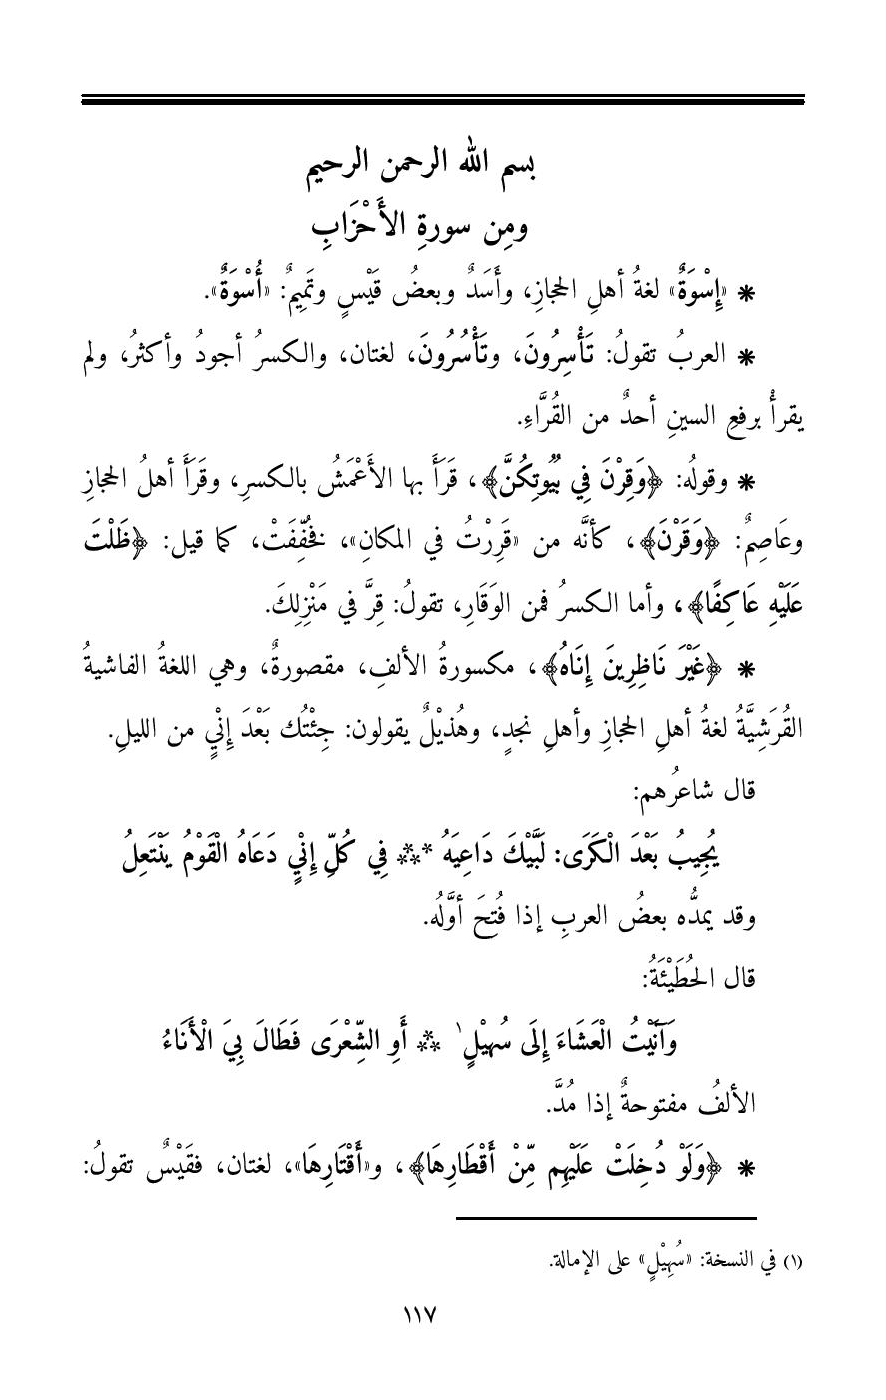 بسم الله الرحمن الرحيم
ومِن سورةِ الأَحْزَابِ
* «إِسْوَةٌ» لغةُ أهلِ الحجازِ، وأَسَدٌ وبعضُ قَيْسٍ وتَمِيمٌ: «أُسْوَةٌ».
* العربُ تقولُ: تَأْسِرُونَ، وتَأْسُرُونَ، لغتان، والكسرُ أجودُ وأكثرُ، ولم
يقرأْ برفعِ السينِ أحدٌ من القُرَّاءِ.
* وقولُه: ﴿وَقِرْنَ فِي بُيُوتِكُنَّ﴾، قَرَأَ بها الأَعْمَشُ بالكسرِ، وقَرَأَ أهلُ الحجازِ
وعَاصِمٌ: ﴿وَقَرْنَ﴾، كأنَّه من «قَرِرْتُ في المكانِ»، فخُفِّفَتْ، كما قيل: ﴿ظَلْتَ
عَلَيْهِ عَاكِفًا﴾، وأما الكسرُ فمن الوَقَارِ، تقولُ: قِرَّ في مَنْزِلِكَ.
* ﴿غَيْرَ نَاظِرِينَ إِنَاهُ﴾، مكسورةُ الألفِ، مقصورةٌ، وهي اللغةُ الفاشيةُ
القُرَشِيَّةُ لغةُ أهلِ الحجازِ وأهلِ نجدٍ، وهُذيْلٌ يقولون: جِئْتُك بَعْدَ إِنْيٍ من الليلِ.
قال شاعرُهم:
يُجِيبُ بَعْدَ الْكَرَى: لَبَّيْكَ دَاعِيَهُ *** فِي كُلِّ إِنْيٍ دَعَاهُ الْقَوْمُ يَنْتَعِلُ
وقد يمدُّه بعضُ العربِ إذا فُتِحَ أوَّلُه.
قال الحُطَيْئَةُ:
وَآنَيْتُ الْعَشَاءَ إِلَى سُهيْلٍ ١ *** أَوِ الشِّعْرَى فَطَالَ بِيَ الْأَنَاءُ
الألفُ مفتوحةٌ إذا مُدَّ.
* ﴿وَلَوْ دُخِلَتْ عَلَيْهِم مِّنْ أَقْطَارِهَا﴾، و«أَقْتَارِهَا»، لغتان، فقَيْسٌ تقولُ:
(١) في النسخة: «سُهِيْلٍ» على الإمالة.
١١٧